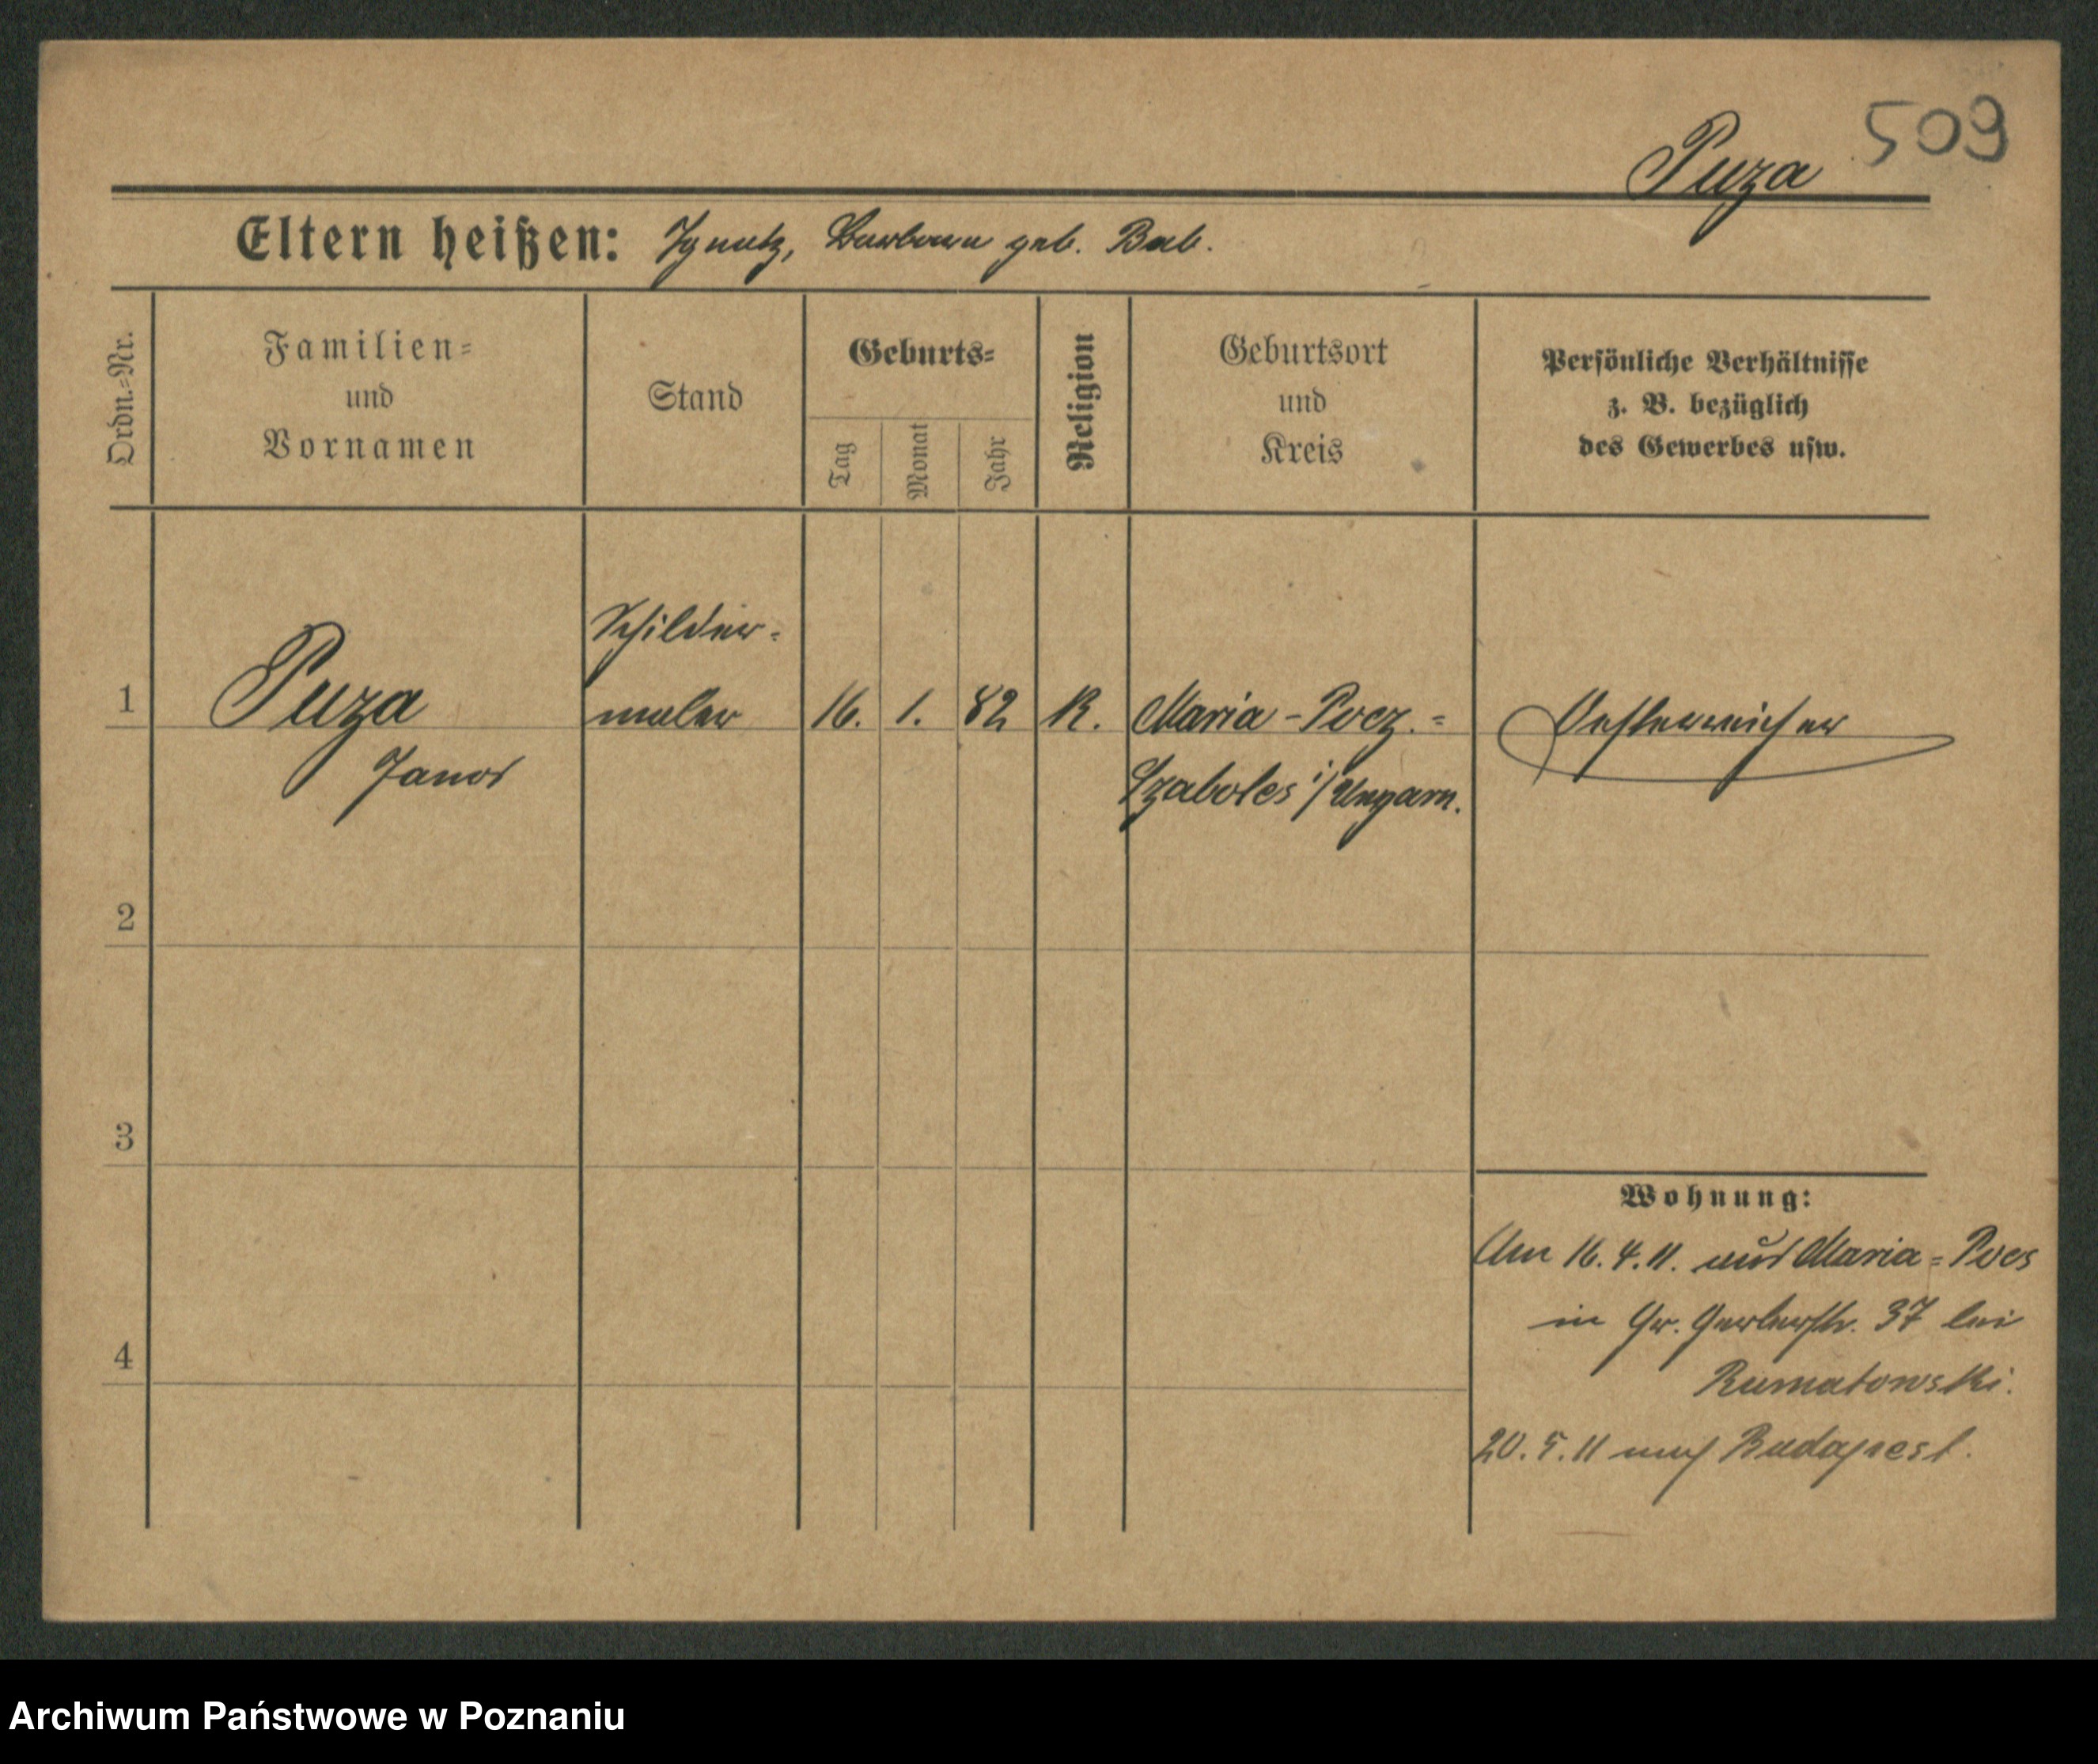 509
Puza
Eltern heißen: Ignatz, Barbara geb. Bab.
Ordn.=Nr.
Familien=
und
Vornamen
Stand
Geburts=
Tag
Monat
Jahr
Religion
Geburtsort
und
Kreis
Persönliche Verhältnisse
z. B. bezüglich
des Gewerbes usw.
Schilder-
1 Puza maler 16. 1. 82 K. Maria-Pocz.= Oesterreicher
Janos Szabolcs i/Ungarn.
2
3
4
Wohnung:
Am 16.4.11. aus Maria=Pocs
in Gr. Gerberstr. 37 bei
Rumatowski.
20.5.11 nach Budapest.
Archiwum Państwowe w Poznaniu